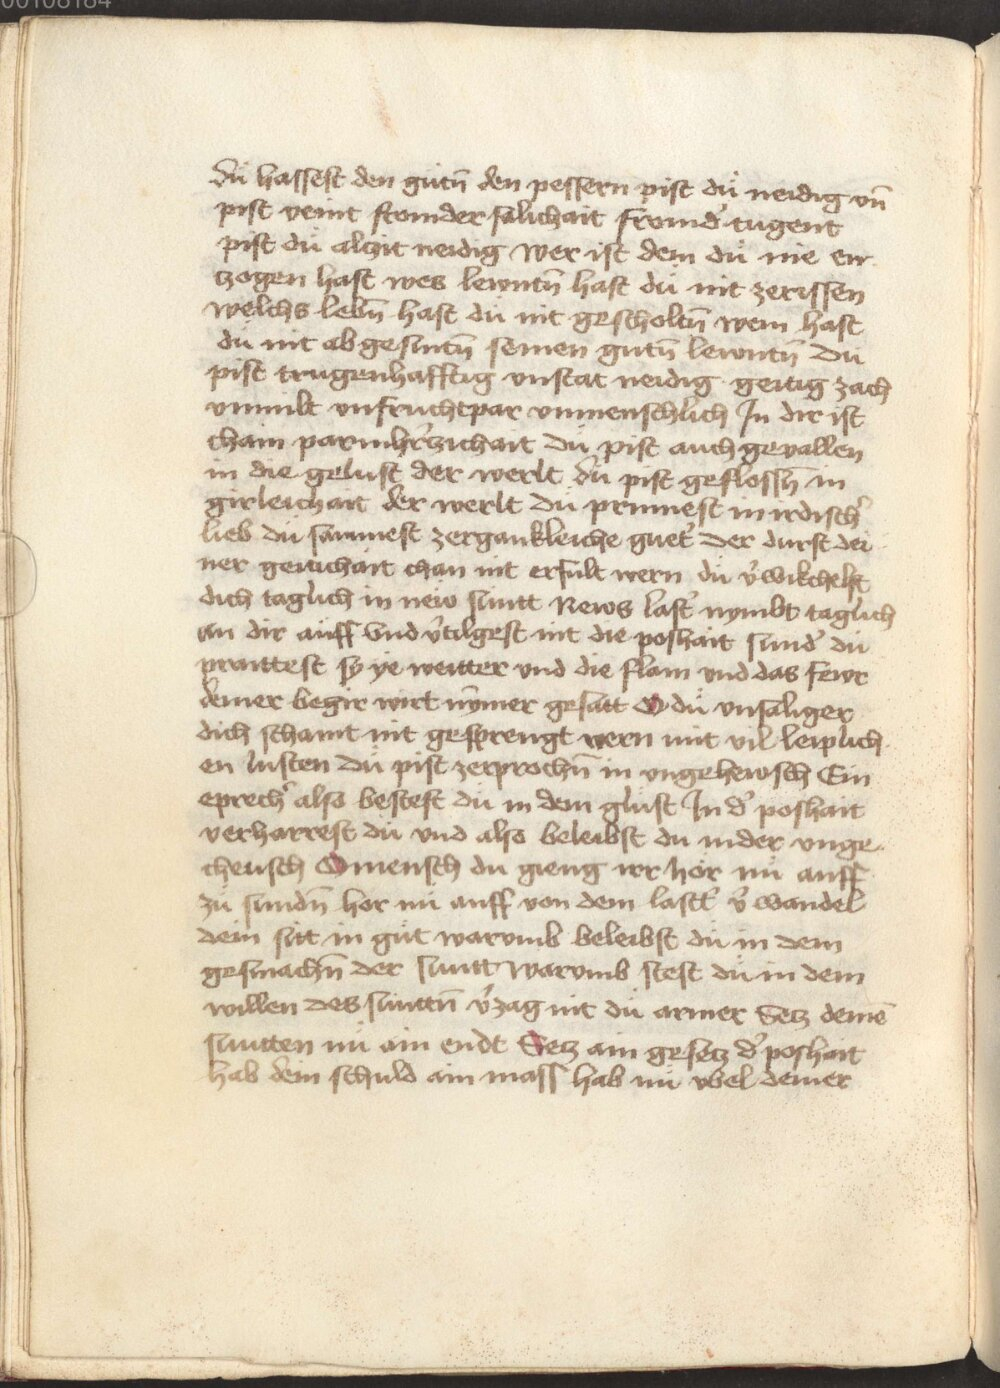 00108184
du hassest den gütn̄ den pessern pist dü neidig vn̄
pist veint fromder salichait fromd' tugent
pist dü alczit neidig wer ist dem dü nie en
czogen hast wes lewntn̄ hast dü nit zerissen
welchs lebn̄ hast dü nit gescholtn̄ wem hast
dü nit ab gesnitn̄ seinen gutn̄ lewntn̄ Du
pist trugenhafftig vnstat neidig geitig zach
vnmilt vnfruchtpar vnmenschlich In dir ist
chain parmh'rzichait Du pist auch gevallen
in die gelust der werlt du pist geflossn̄ in
girleichait der werlt Du prinnest in irdisch'
lieb dü samnest zergankleiche guet' Der durst dei
ner geitichait chan nit erfult wern dü v'wikchelst
dich taglich in new suntt News last' nymbt taglich
an dir auff Vnd v'tilgest nit die poshait sund' dü
praittest sy ye weitter vnd die flam vnd das fewr
deiner begir wirt nȳmer gesatt O dü vnsaliger
dich schamt nit gesprengt wern mit vil leiplich
en lusten Dü pist zerprochn̄ in vngehewsch Ein
eprech' also bestest dü in dem glust In d' poshait
verharrest dü vnd also beleibst du in der vnge
cheusch O mensch du gieng irr hör nü auff
zü sundn̄ hor nü auff von dem last' v'wandel
dein sitt in güt warvmb beleibst dü in dem
gesmachn̄ der suntt warvmb stest dü in dem
willen des suntn̄ v'zag nit dü armer Secz deinē
suntten nü ain endt Secz ain gesecz d' poshait
hab dem schuld ain mass hab nü vbel deiner